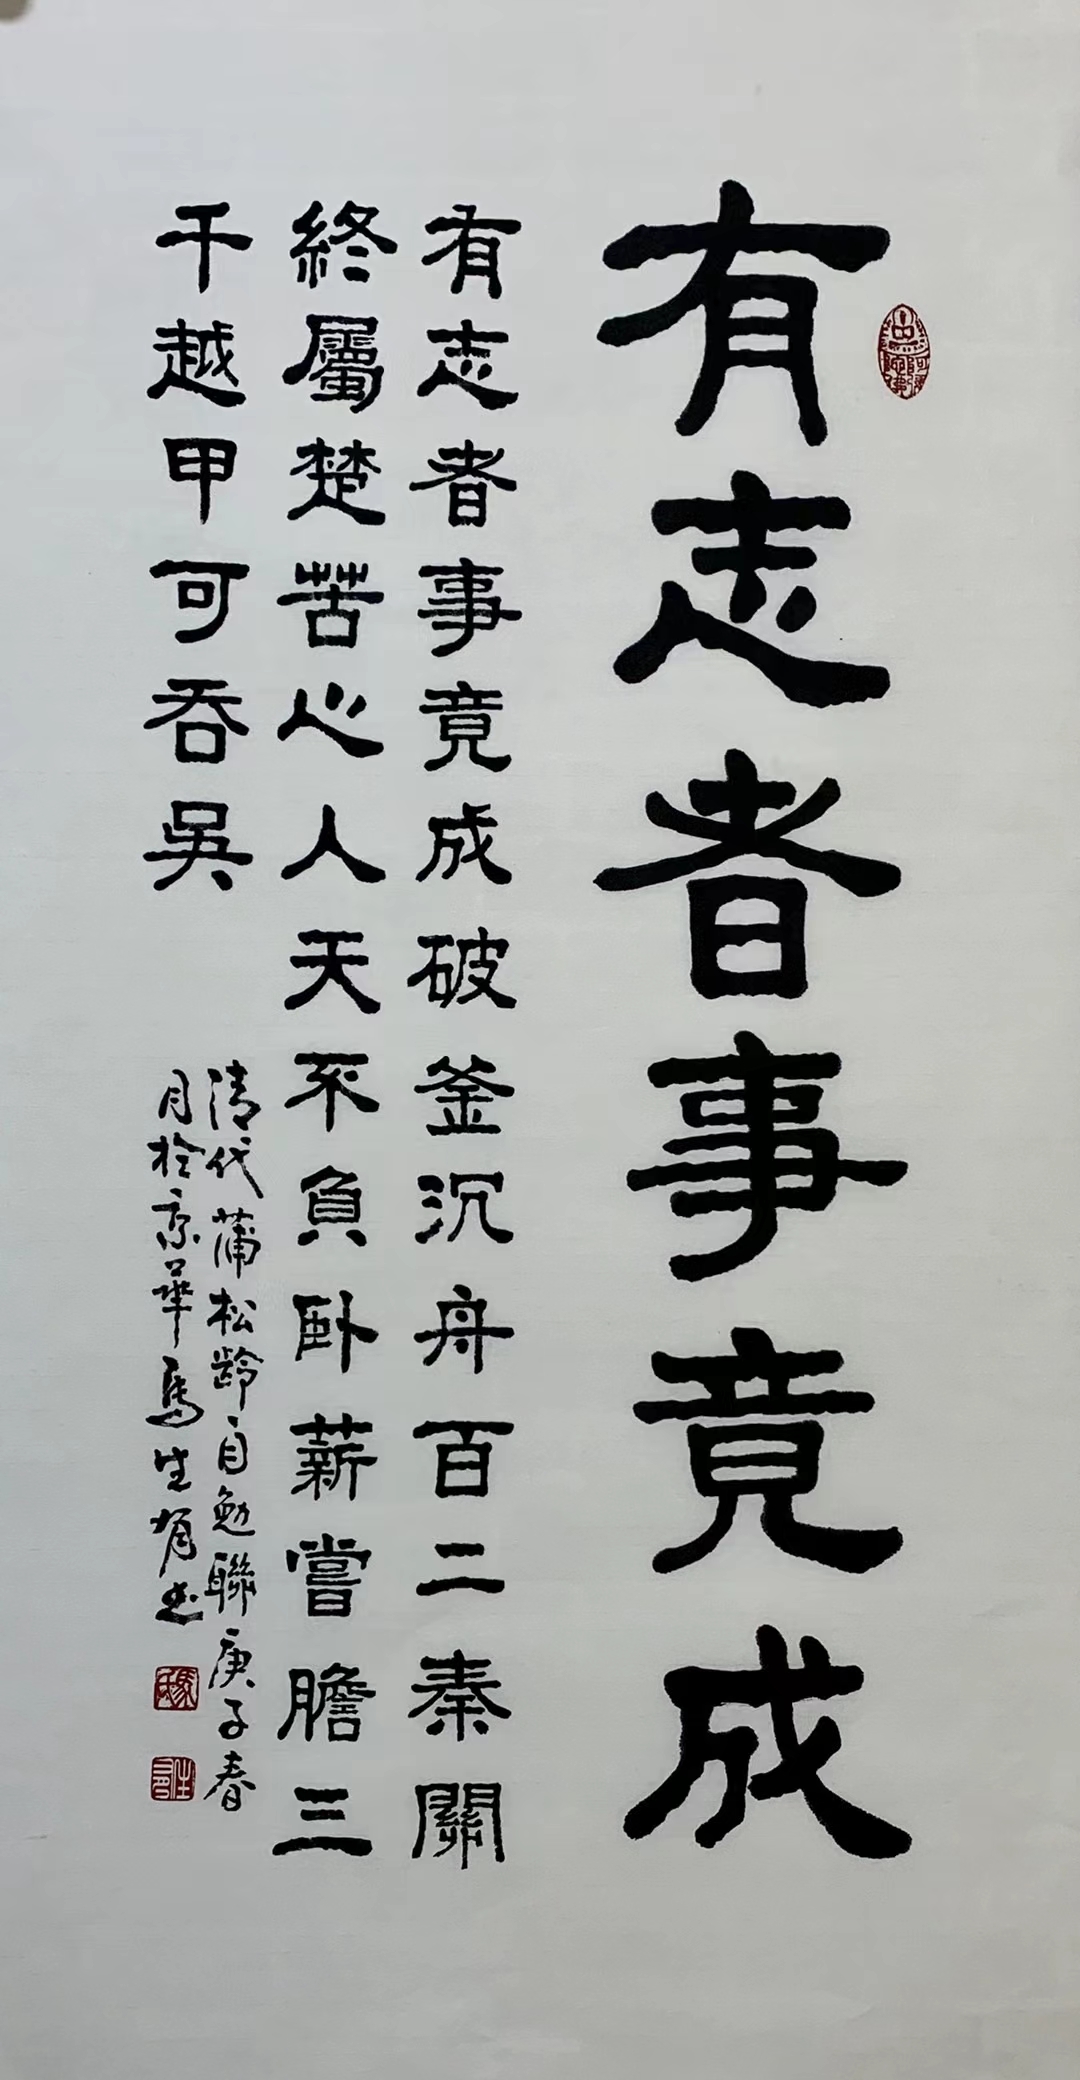 有志者事竟成
有志者事竟成破釜沉舟百二秦關
終屬楚苦心人天不負卧薪嘗膽三
千越甲可吞吳
清代蒲松齡自勉聯庚子春
月於京華馬生有書